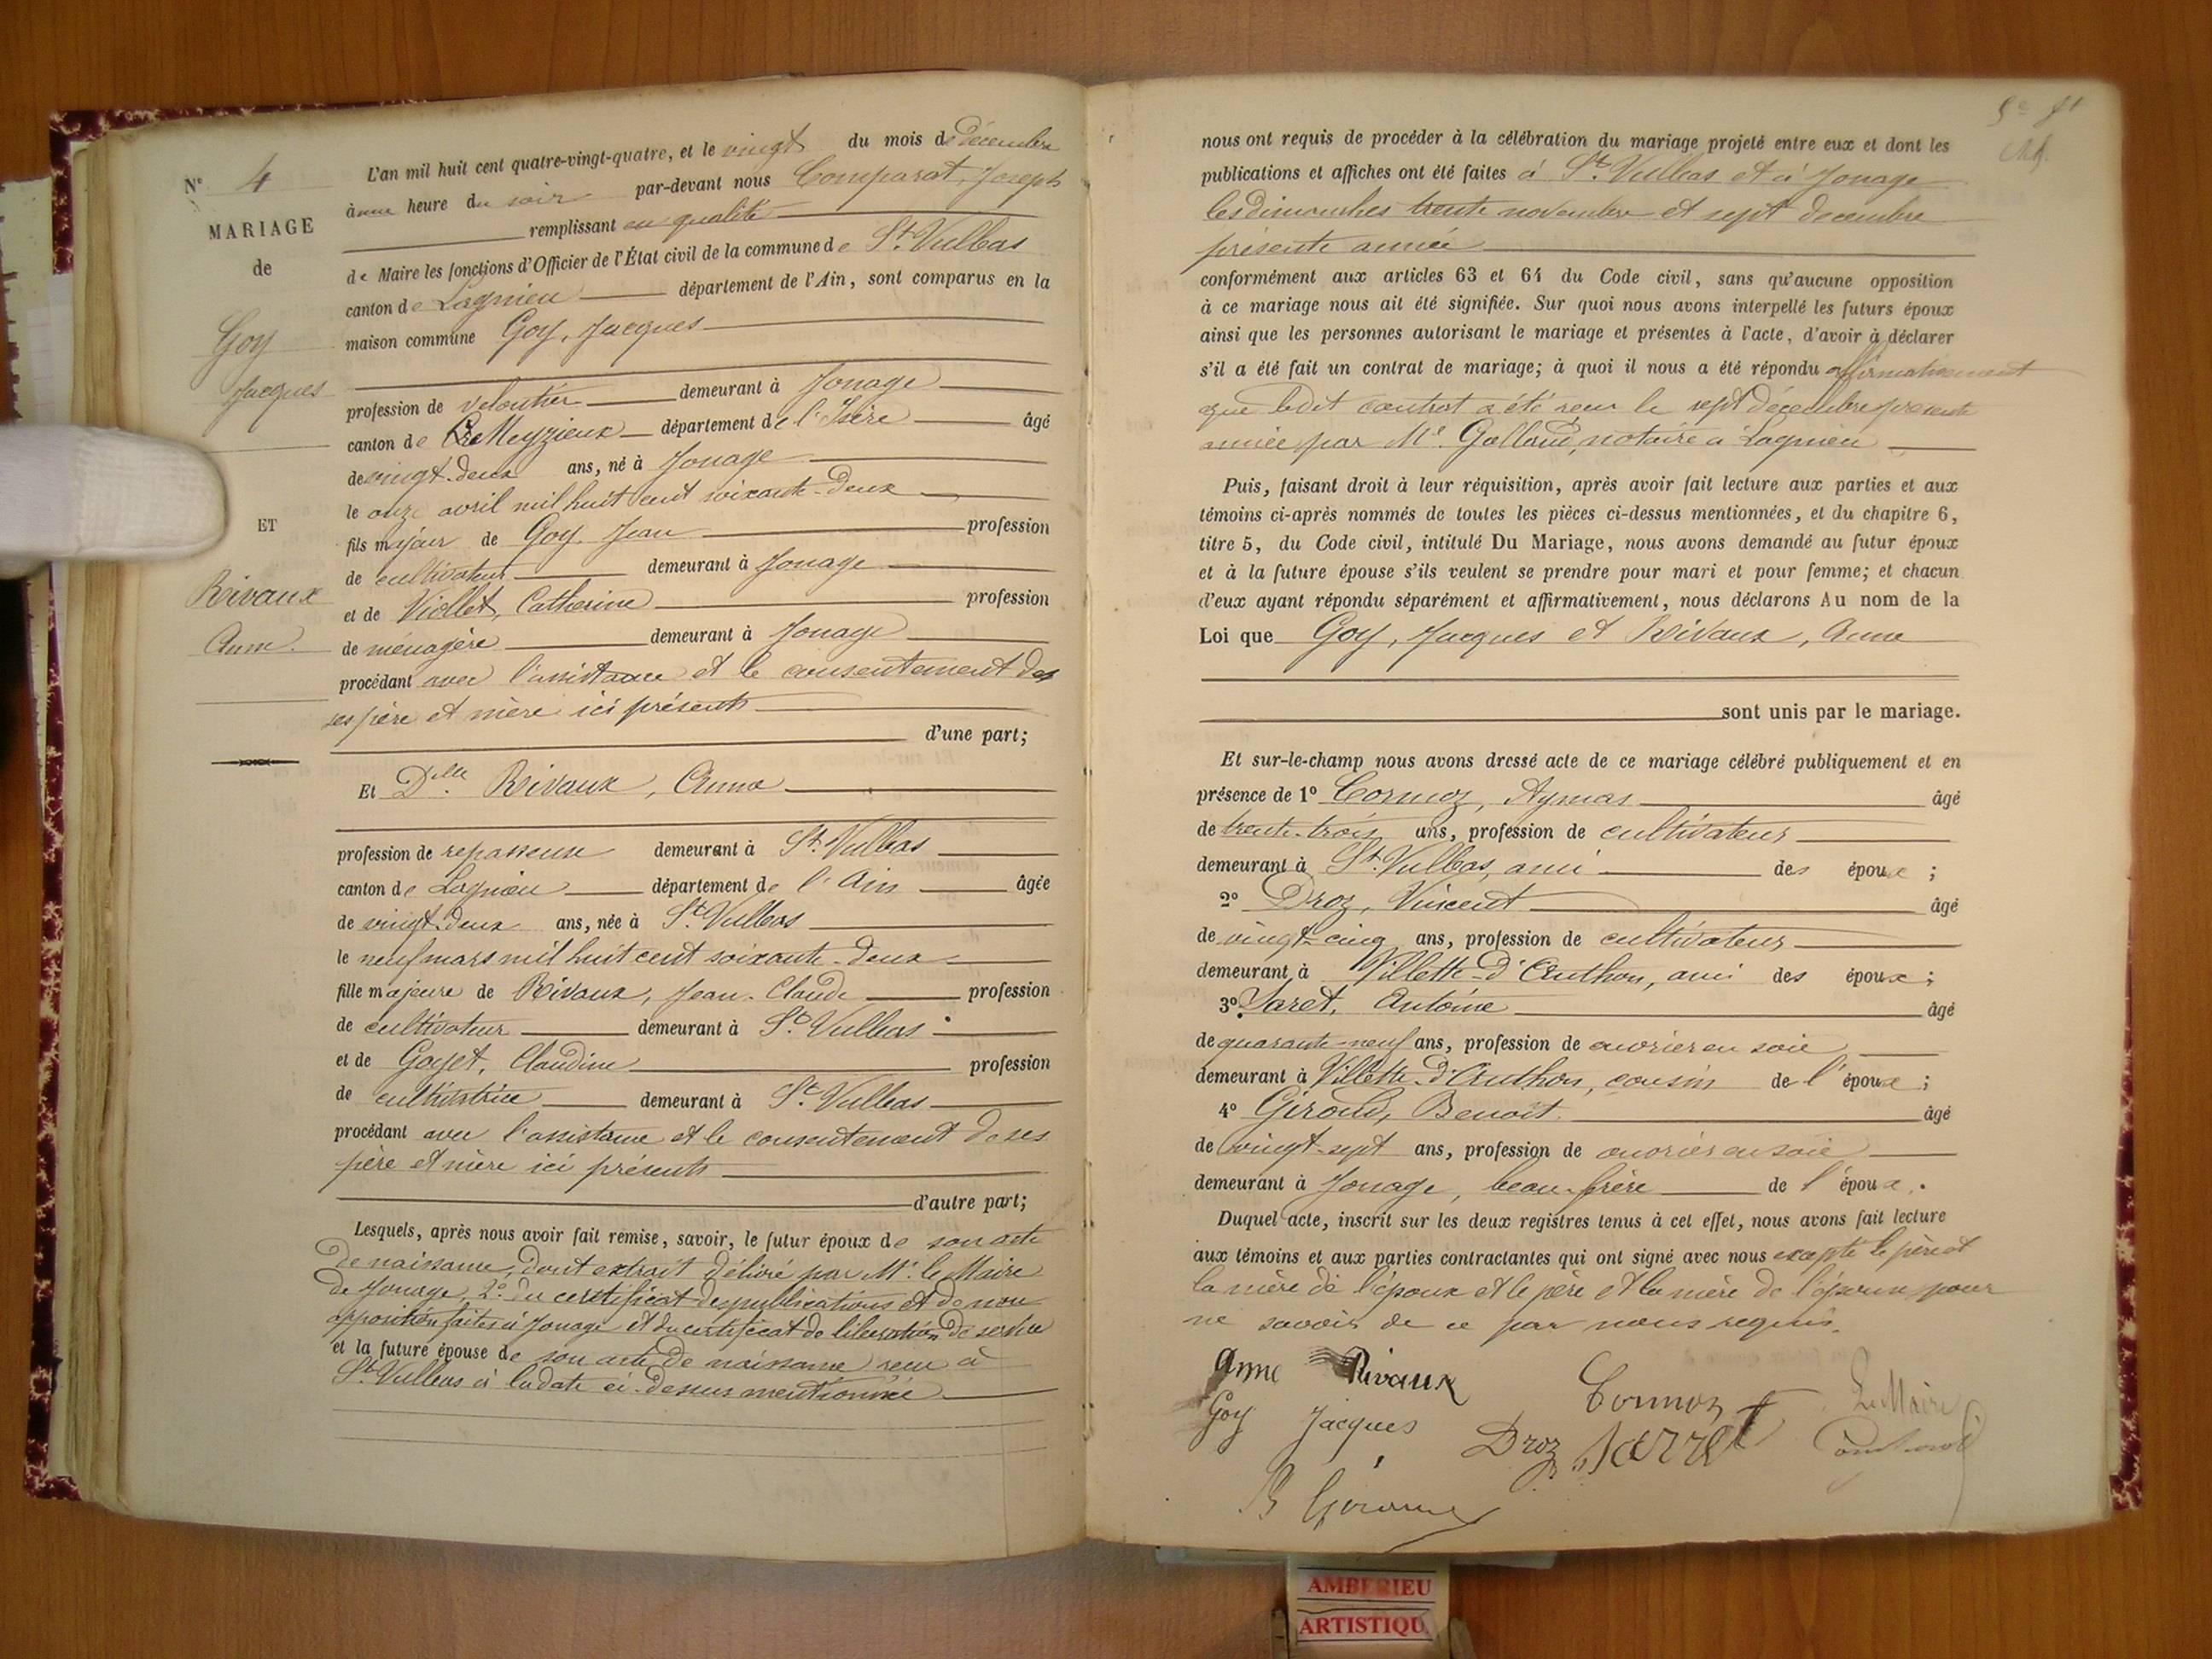 N° 4
MARIAGE
de
Goy
Jacques
ET
Rivaux
Anne
L'an mil huit cent quatre-vingt-quatre, et le vingt du mois de décembre
à une heure du soir par-devant nous Comparat, Joseph
remplissant en qualité
de Maire les fonctions d'Officier de l'État civil de la commune de St. Vulbas
canton de Lagnieu département de l'Ain, sont comparus en la
maison commune Goy, Jacques
profession de veloutier demeurant à Jonage
canton de Meyzieux département de l'Isère âgé
de vingt-deux ans, né à Jonage
le onze avril mil huit cent soixante-deux
fils majeur de Goy, Jean profession
de cultivateur demeurant à Jonage
et de Viollet, Catherine profession
de ménagère demeurant à Jonage
procédant avec l'assistance et le consentement des
ses père et mère ici présents
d'une part;
Et Dlle. Rivaux, Anna
profession de repasseuse demeurant à St. Vulbas
canton de Lagnieu département de l'Ain âgée
de vingt-deux ans, née à St. Vulbas
le neuf mars mil huit cent soixante-deux
fille majeure de Rivaux, Jean-Claude profession
de cultivateur demeurant à St. Vulbas
et de Goyet, Claudine profession
de cultivatrice demeurant à St. Vulbas
procédant avec l'assistance et le consentement de ses
père et mère ici présents
d'autre part;
Lesquels, après nous avoir fait remise, savoir, le futur époux de son acte
de naissance, dont extrait délivré par Mr. le Maire
de Jonage, 2° du certificat des publications et de non
opposition faites à Jonage et du certificat de libération de service
et la future épouse de son acte de naissance reçu à
St. Vulbas à la date ci-dessus mentionnée
nous ont requis de procéder à la célébration du mariage projeté entre eux et dont les
publications et affiches ont été faites à St. Vulbas et à Jonage
les dimanches trente novembre et sept decembre
présente année
conformément aux articles 63 et 64 du Code civil, sans qu'aucune opposition
à ce mariage nous ait été signifiée. Sur quoi nous avons interpellé les futurs époux
ainsi que les personnes autorisant le mariage et présentes à l'acte, d'avoir à déclarer
s'il a été fait un contrat de mariage; à quoi il nous a été répondu affirmativement
que ledit contrat a été reçu le sept décembre présente
année par Me. Galland, notaire à Lagnieu
Puis, faisant droit à leur réquisition, après avoir fait lecture aux parties et aux
témoins ci-après nommés de toutes les pièces ci-dessus mentionnées, et du chapitre 6,
titre 5, du Code civil, intitulé Du Mariage, nous avons demandé au futur époux
et à la future épouse s'ils veulent se prendre pour mari et pour femme; et chacun
d'eux ayant répondu séparément et affirmativement, nous déclarons Au nom de la
Loi que Goy, Jacques et Rivaux, Anne
sont unis par le mariage.
Et sur-le-champ nous avons dressé acte de ce mariage célébré publiquement et en
présence de 1° Cormoz, Aymar âgé
de trente-trois ans, profession de cultivateur
demeurant à St. Vulbas, ami des époux ;
2° Droz, Vincent âgé
de vingt-cinq ans, profession de cultivateur
demeurant à Villette-d'Anthon, ami des époux ;
3° Jaret, Antoine âgé
de quarante-neuf ans, profession de ouvrier en soie
demeurant à Villette-d'Anthon, cousin de l'époux ;
4° Giroud, Benoit âgé
de vingt-sept ans, profession de ouvrier en soie
demeurant à Jonage, beau-frère de l'époux.
Duquel acte, inscrit sur les deux registres tenus à cet effet, nous avons fait lecture
aux témoins et aux parties contractantes qui ont signé avec nous excepté le père et
la mère de l'époux et le père et la mère de l'épouse pour
ne savoir de ce par nous requis.
Anne Rivaux
Cormoz
Le Maire
Goy Jacques
Droz
Jarret
Comparat
B Giroud
AMBERIEU
ARTISTIQU